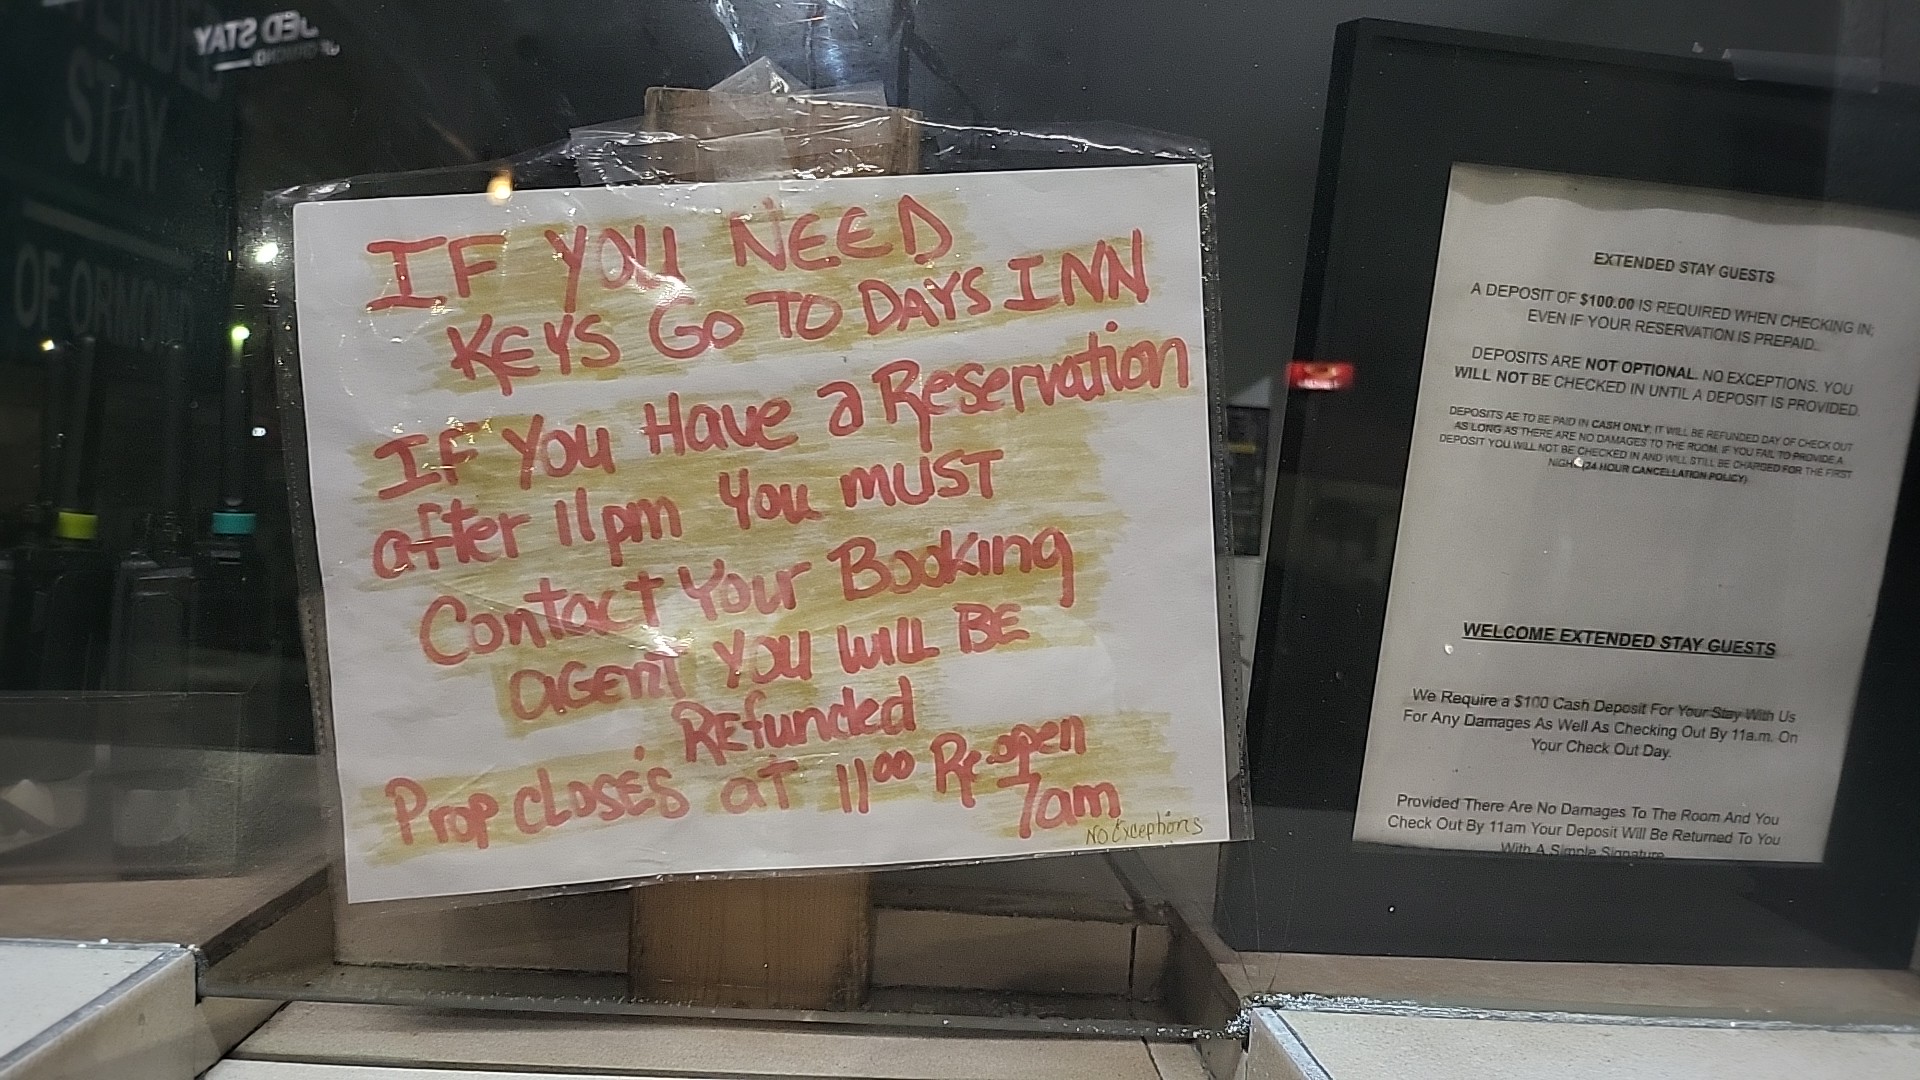 STAY
OF ORMOND
JED STAY
IF YOU NEED
KEYS GO TO DAYS INN
IF YOU Have a Reservation
after 11pm You MUST
Contact Your Booking
AGENT YOU WILL BE
REfunded
Prop CLOSE'S AT 11⁰⁰ Re-open
7am
No Exceptions
EXTENDED STAY GUESTS
A DEPOSIT OF $100.00 IS REQUIRED WHEN CHECKING IN;
EVEN IF YOUR RESERVATION IS PREPAID..
DEPOSITS ARE NOT OPTIONAL. NO EXCEPTIONS. YOU
WILL NOT BE CHECKED IN UNTIL A DEPOSIT IS PROVIDED.
DEPOSITS AE TO BE PAID IN CASH ONLY; IT WILL BE REFUNDED DAY OF CHECK OUT
AS LONG AS THERE ARE NO DAMAGES TO THE ROOM. IF YOU FAIL TO PROVIDE A
DEPOSIT YOU WILL NOT BE CHECKED IN AND WILL STILL BE CHARGED FOR THE FIRST
NIGHT (24 HOUR CANCELLATION POLICY)
WELCOME EXTENDED STAY GUESTS
We Require a $100 Cash Deposit For Your Stay With Us
For Any Damages As Well As Checking Out By 11a.m. On
Your Check Out Day.
Provided There Are No Damages To The Room And You
Check Out By 11am Your Deposit Will Be Returned To You
With A Simple Signature